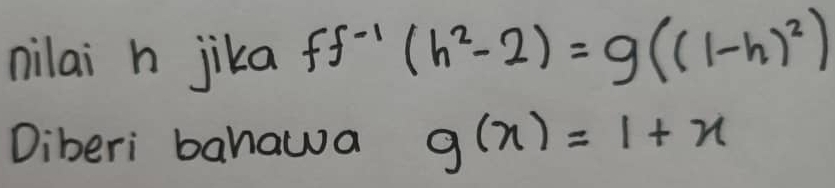 nilai h jika ff⁻¹ (h²-2) = g((1-h)²)
Diberi bahawa g(x) = 1 + x